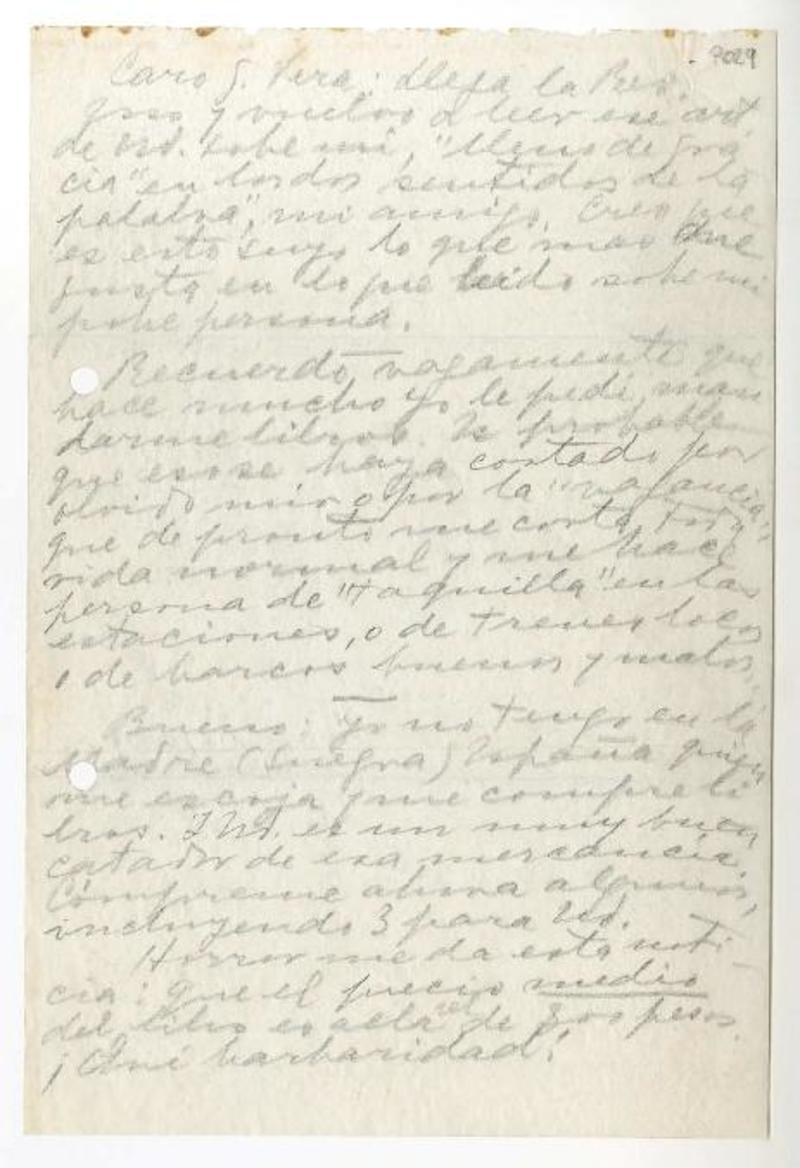 7029
Caro G. Vera: Llega la Rev.
y vuelvo a leer ese art.
de Ud. sobre mí, "lleno de gra
cia" en los dos sentidos de la
palabra", mi amigo. Creo que
es esto suyo lo que mas me
gusta en lo que leido sobre mi
pobre persona.
Recuerdo vagamente que
hace mucho yo le pedí man
darme libros. Es probable
que eso se haya cortado por
olvido mío o por la "vagancia"
que de pronto me corta toda
vida normal y me hace
persona de "taquilla" en las
estaciones, o de trenes locos
o de barcos buenos y malos.
Bueno: Yo no tengo en la
Madre (Suegra) España quien
me escoja y me compre li
bros. I Ud. es un muy buen
catador de esa mercancía.
Cómpreme ahora algunos,
incluyendo 3 para Ud.
Horror me da esta noti-
cia: que el precio medio
del libro es allá el de 300 pesos.
¡Qué barbaridad!